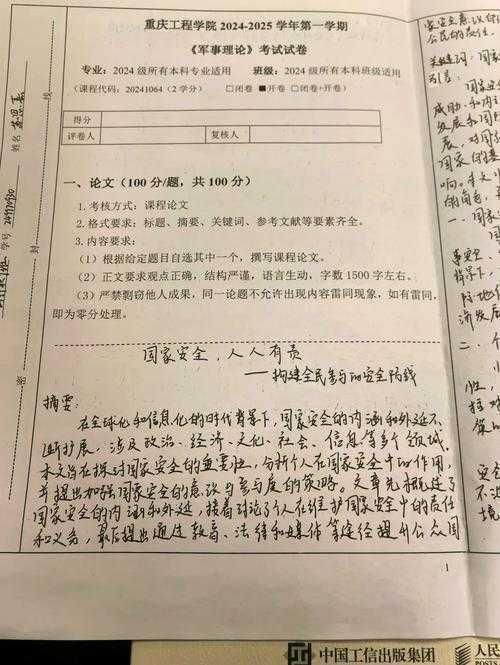 重庆工程学院 2024-2025 学年第一学期
《军事理论》考试试卷
专业：2024 级所有本科专业适用 班级：2024 级所有本科班级适用
(课程代码：20241064 (2 学分) □闭卷 ■开卷 □闭卷+开卷)
得分
评卷人 复核人
一、论文（100 分/题，共 100 分）
1. 考核方式：课程论文
2. 格式要求：标题、摘要、关键词、参考文献等要素齐全。
3. 内容要求：
（1）根据给定题目自选其中一个，撰写课程论文。
（2）正文要求观点正确，结构严谨，语言生动，字数 1500 字左右。
（3）严禁剽窃他人成果，同一论题不允许出现内容雷同现象，如有雷同，
即为零分处理。
国家安全，人人有责
——构建全民参与的安全防线
摘要：
在全球化和信息化的时代背景下，国家安全的内涵和外延不
断扩展，涉及政治、经济、文化、社会、信息等多个领域。
本文旨在探讨国家安全的重要性，分析个人在国家安全中的作用，
并提出加强国家安全的意识与参与度的策略。文章先概述了
国家安全的内涵和外延，接着讨论了个人在维护国家安全中的责任
和义务，最后提出通过教育、法律和媒体等途径提升公众国
1
姓名
学号
线
封
密
家安全意识
公民的责任。
关键词：国家
引言：
国家安
发展和国
国家的基
响。本文
的角色，
一、国家
背景下，
济发展
二、个
中国工信出版集团
人民